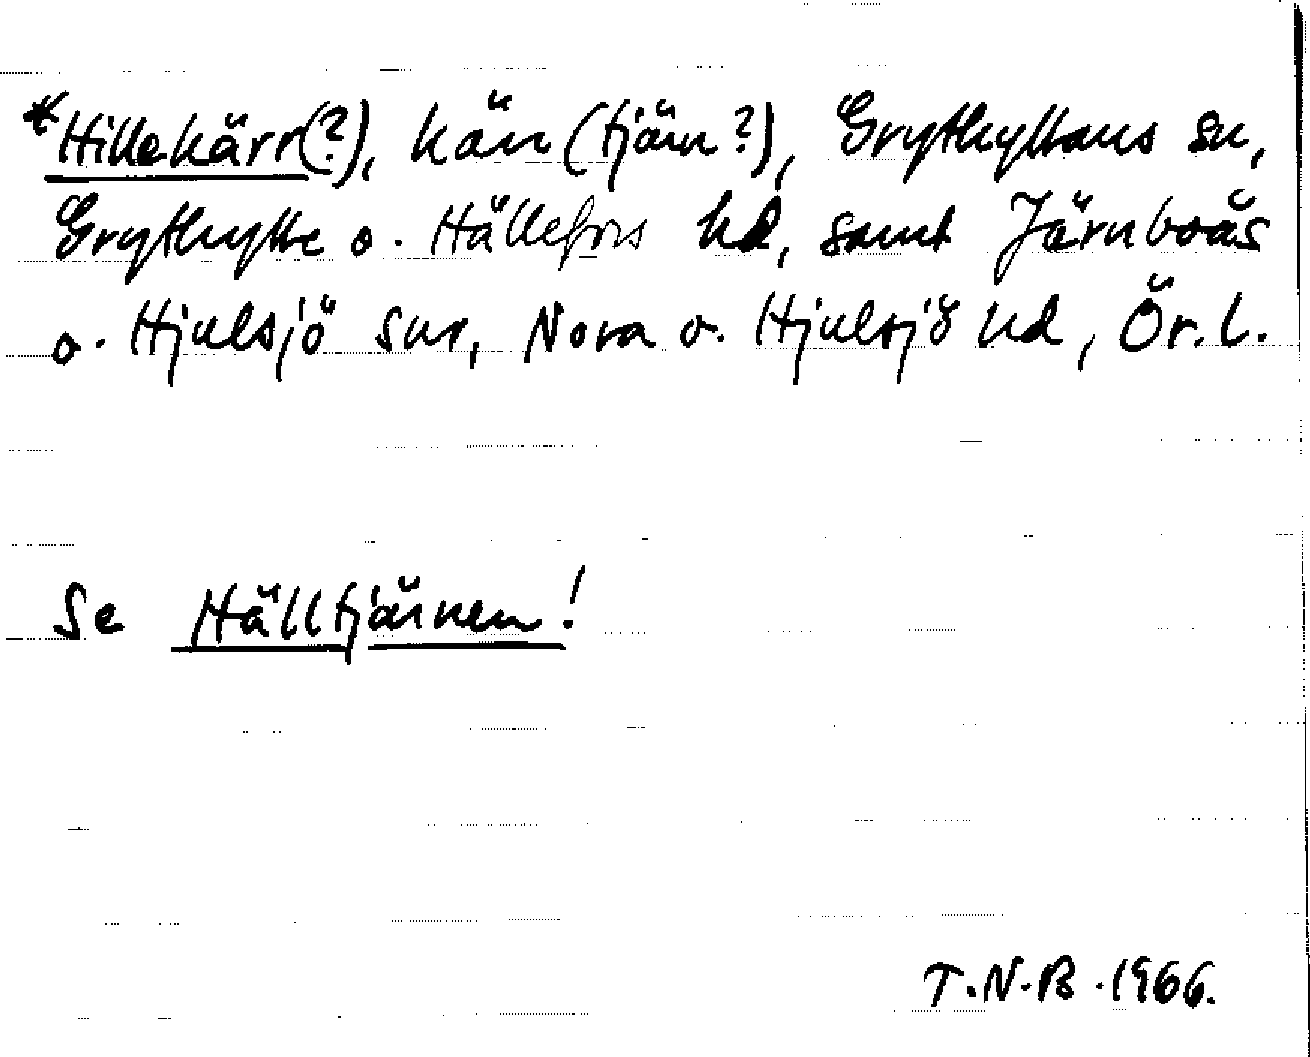 *Hillekärr(?), kärr (tjärn?), Grythyttans sn,
Grythytte o. Hällefors hd, samt Järnboås
o. Hjulsjö snr, Nora o. Hjulsjö hd, Ör. l.
Se Hälltjärnen!
T.N.B. 1966.